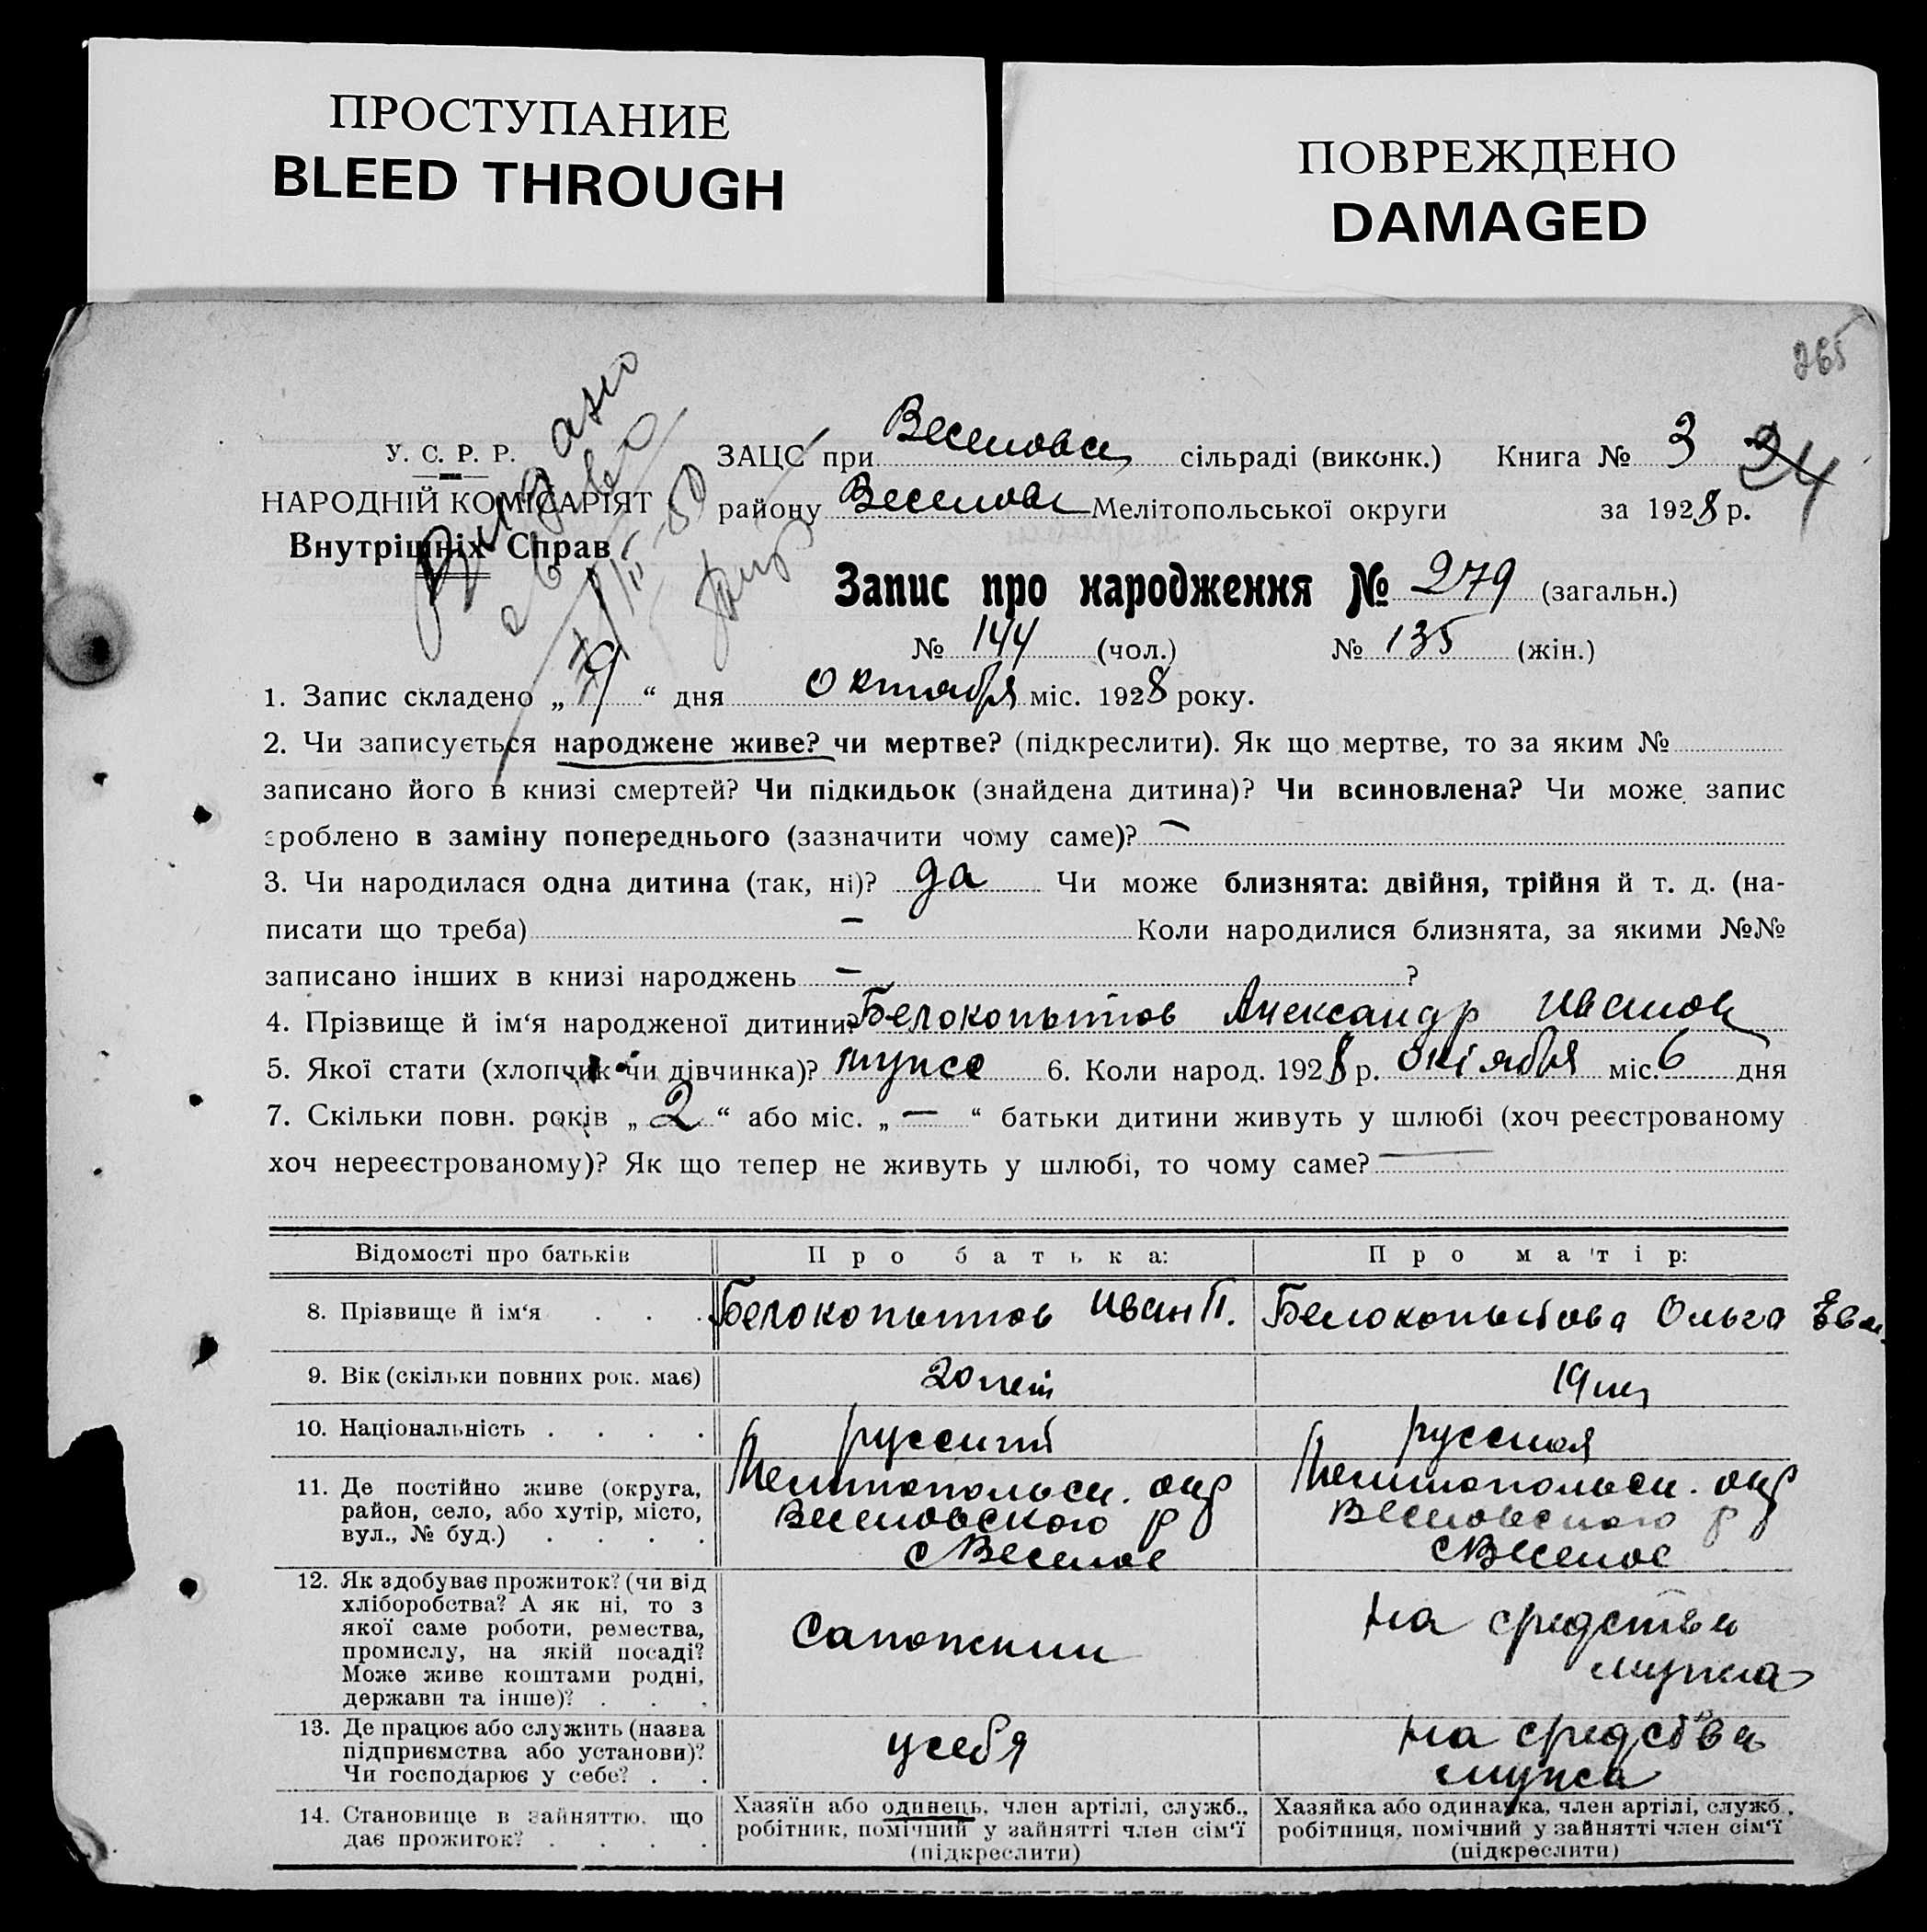 ПРОСТУПАНИЕ
BLEED THROUGH
ПОВРЕЖДЕНО
DAMAGED
265
У. С. Р. Р.
НАРОДНІЙ КОМІСАРІЯТ
Внутрішніх Справ
Видано
ЗАЦС при Веселовск сільраді (виконк.) Книга № 3 24
району Веселовск Мелітопольської округи за 1928 р.
Запис про народження № 279 (загальн.)
№ 144 (чол.) № 135 (жін.)
1. Запис складено „ 19 “ дня октября міс. 1928 року.
2. Чи записується народжене живе? чи мертве? (підкреслити). Як що мертве, то за яким №
записано його в книзі смертей? Чи підкидьок (знайдена дитина)? Чи всиновлена? Чи може запис
зроблено в заміну попереднього (зазначити чому саме)? —
3. Чи народилася одна дитина (так, ні)? да Чи може близнята: двійня, трійня й т. д. (на-
писати що треба) — Коли народилися близнята, за якими №№
записано інших в книзі народжень — ?
4. Прізвище й ім‘я народженої дитини? Белокопытов Александр Иванов
5. Якої стати (хлопчик чи дівчинка)? мужск 6. Коли народ. 1928 р. октября міс. 6 дня
7. Скільки повн. років „ 2 “ або міс. „ — “ батьки дитини живуть у шлюбі (хоч реєстрованому
хоч нереєстрованому)? Як що тепер не живуть у шлюбі, то чому саме? —
Відомості про батьків Про батька: Про матір:
8. Прізвище й ім‘я . . . Белокопытов Иван П. Белокопытова Ольга Ева
9. Вік (скільки повних рок. має) 20 лет 19 лет
10. Національність . . . . русский русская
11. Де постійно живе (округа,
район, село, або хутір, місто,
вул., № буд.) . . . .
Мелитопольск. окр
Веселовского р
с Веселое
Мелитопольск. окр
Веселовского р
с Веселое
12. Як здобуває прожиток? (чи від
хліборобства? А як ні, то з
якої саме роботи, ремества,
промислу, на якій посаді?
Може живе коштами родні,
держави та інше)? . . .
Сапожник
на средства
мужа
13. Де працює або служить (назва
підприємства або установи)?
Чи господарює у себе? . .
у себя
на средства
мужа
14. Становище в зайняттю, що
дає прожиток? . . . .
Хазяїн або одинець, член артілі, служб.,
робітник, помічний у зайнятті член сім‘ї
(підкреслити)
Хазяйка або одиначка, член артілі, служб.,
робітниця, помічний у зайнятті член сім‘ї
(підкреслити)